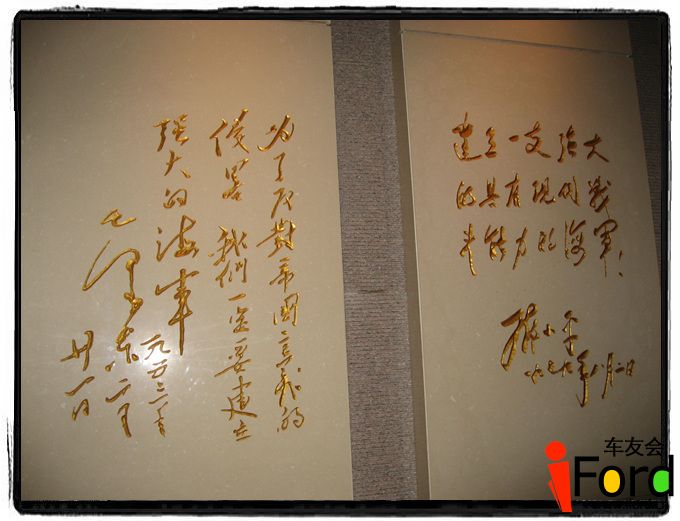 为了反對帝國主義的
侵畧我們一定要建立
强大的海軍
毛泽东
一九五三年
二月
廿一日
建立一支强大
的具有现代战
斗能力的海军。
邓小平
一九七九年八月二日
车友会
iFord